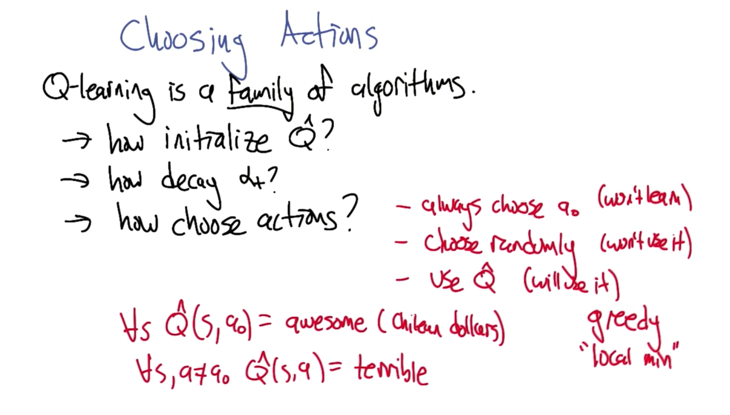 Choosing Actions
Q-learning is a family of algorithms.
→ how initialize Q̂?
→ how decay αt?
→ how choose actions?
- always choose a₀ (won't learn)
- choose randomly (won't use it)
- use Q̂ (will use it)
∀s Q̂(s,a₀) = awesome (dollars)
greedy
"local min"
∀s,a≠a₀ Q̂(s,a) = terrible